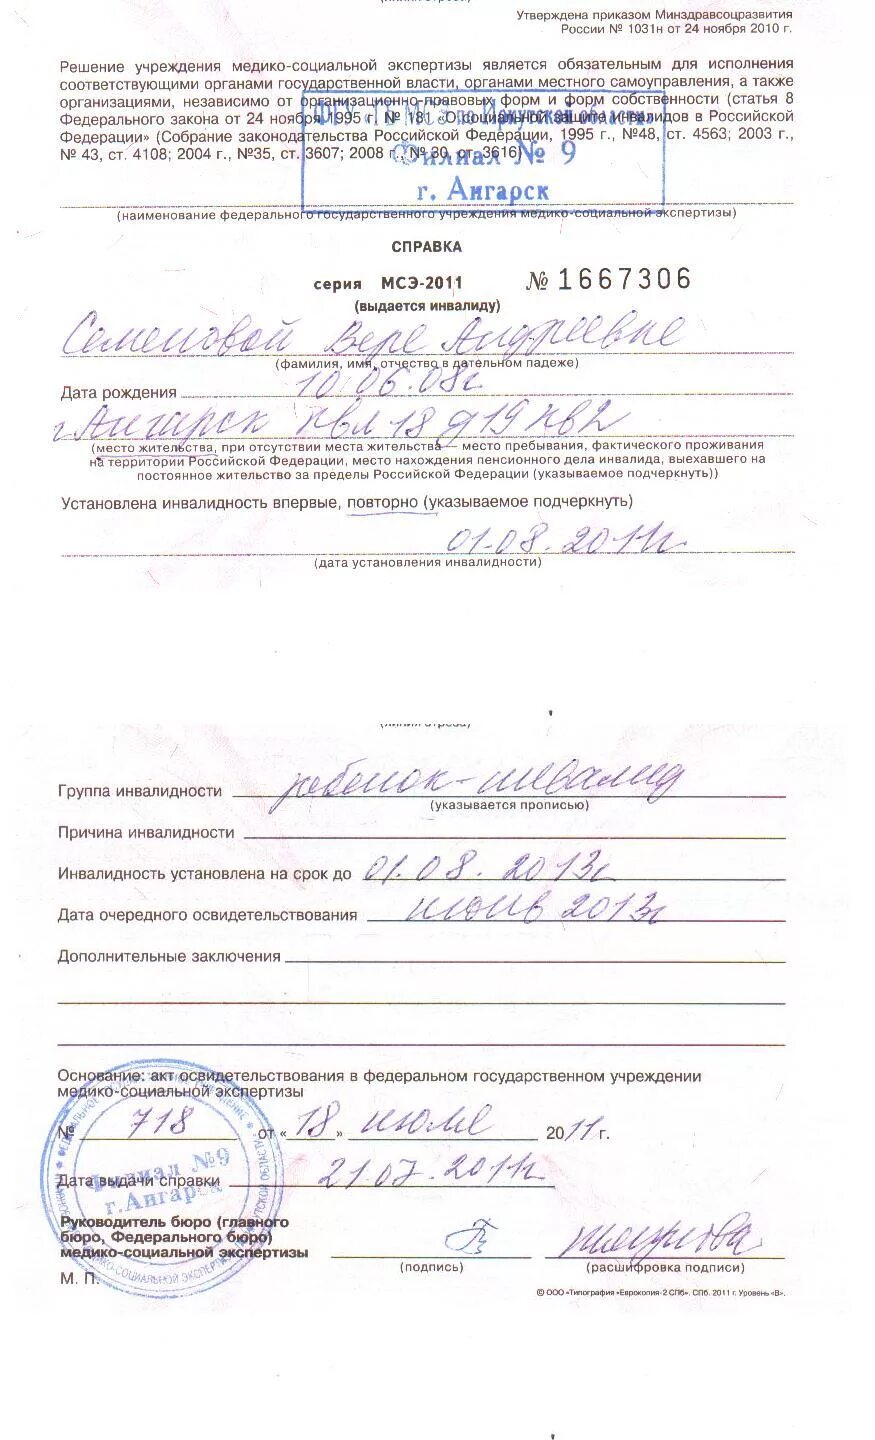 Утверждена приказом Минздравсоцразвития
России № 1031н от 24 ноября 2010 г.
Решение учреждения медико-социальной экспертизы является обязательным для исполнения
соответствующими органами государственной власти, органами местного самоуправления, а также
организациями, независимо от организационно-правовых форм и форм собственности (статья 8
Федерального закона от 24 ноября 1995 г. № 181 «О социальной защите инвалидов в Российской
Федерации» (Собрание законодательства Российской Федерации, 1995 г., №48, ст. 4563; 2003 г.,
№ 43, ст. 4108; 2004 г., №35, ст. 3607; 2008 г., № 30, ст. 3616)
по Иркутской области»
Филиал № 9
г. Ангарск
(наименование федерального государственного учреждения медико-социальной экспертизы)
СПРАВКА
серия МСЭ-2011 № 1667306
(выдается инвалиду)
Семеновой Вере Андреевне
(фамилия, имя, отчество в дательном падеже)
Дата рождения 10.06.08г
г Ангарск квл 18 д 19 кв 2
(место жительства, при отсутствии места жительства — место пребывания, фактического проживания
на территории Российской Федерации, место нахождения пенсионного дела инвалида, выехавшего на
постоянное жительство за пределы Российской Федерации (указываемое подчеркнуть))
Установлена инвалидность впервые, повторно (указываемое подчеркнуть)
01.08.2011г
(дата установления инвалидности)
Группа инвалидности ребенок-инвалид
(указывается прописью)
Причина инвалидности
Инвалидность установлена на срок до 01.08.2013г
Дата очередного освидетельствования 2013г
Дополнительные заключения
Основание: акт освидетельствования в федеральном государственном учреждении
медико-социальной экспертизы
№ 718 от «18» июля 2011 г.
Филиал №9
г.Ангарск
Дата выдачи справки 21.07.2011г
Руководитель бюро (главного
бюро, Федерального бюро)
медико-социальной экспертизы
(подпись) (расшифровка подписи)
М. П.
© ООО «Типография «Еврокопия-2 СПб». СПб. 2011 г. Уровень «В».